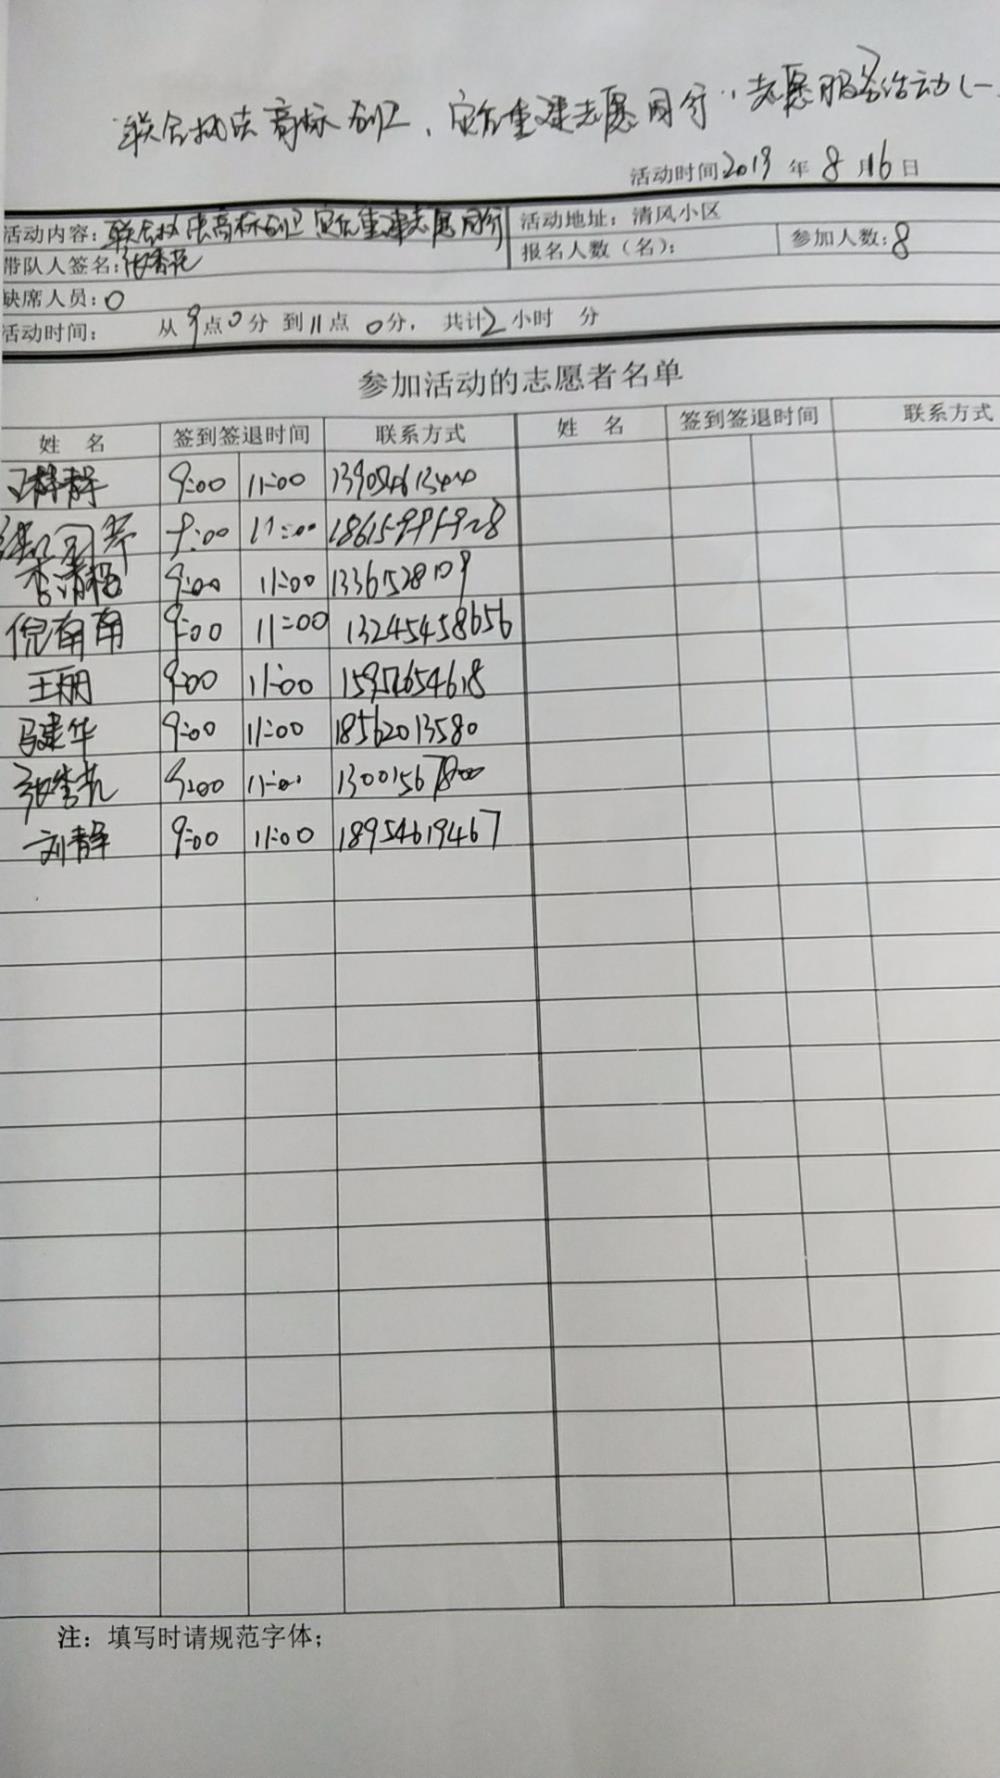 联合执法高标创卫、灾后重建志愿同行”志愿服务活动(一
活动时间2019年8月16日
活动内容：联合执法高标创卫 灾后重建志愿同行 活动地址：清风小区
带队人签名：张秀花 报名人数（名）： 参加人数：8
缺席人员：0
活动时间： 从9点0分到11点0分，共计2小时 分
参加活动的志愿者名单
姓 名 签到签退时间 联系方式 姓 名 签到签退时间 联系方式
9:00 11:00
9:00 11:00 18615991928
9:00 11:00 1336528109
倪南南 9:00 11:00 13245458656
王朋 9:00 11:00
马建华 9:00 11:00 18562013580
张秀花 9:00 11:00 13001567800
刘静 9:00 11:00 18954619467
注：填写时请规范字体；